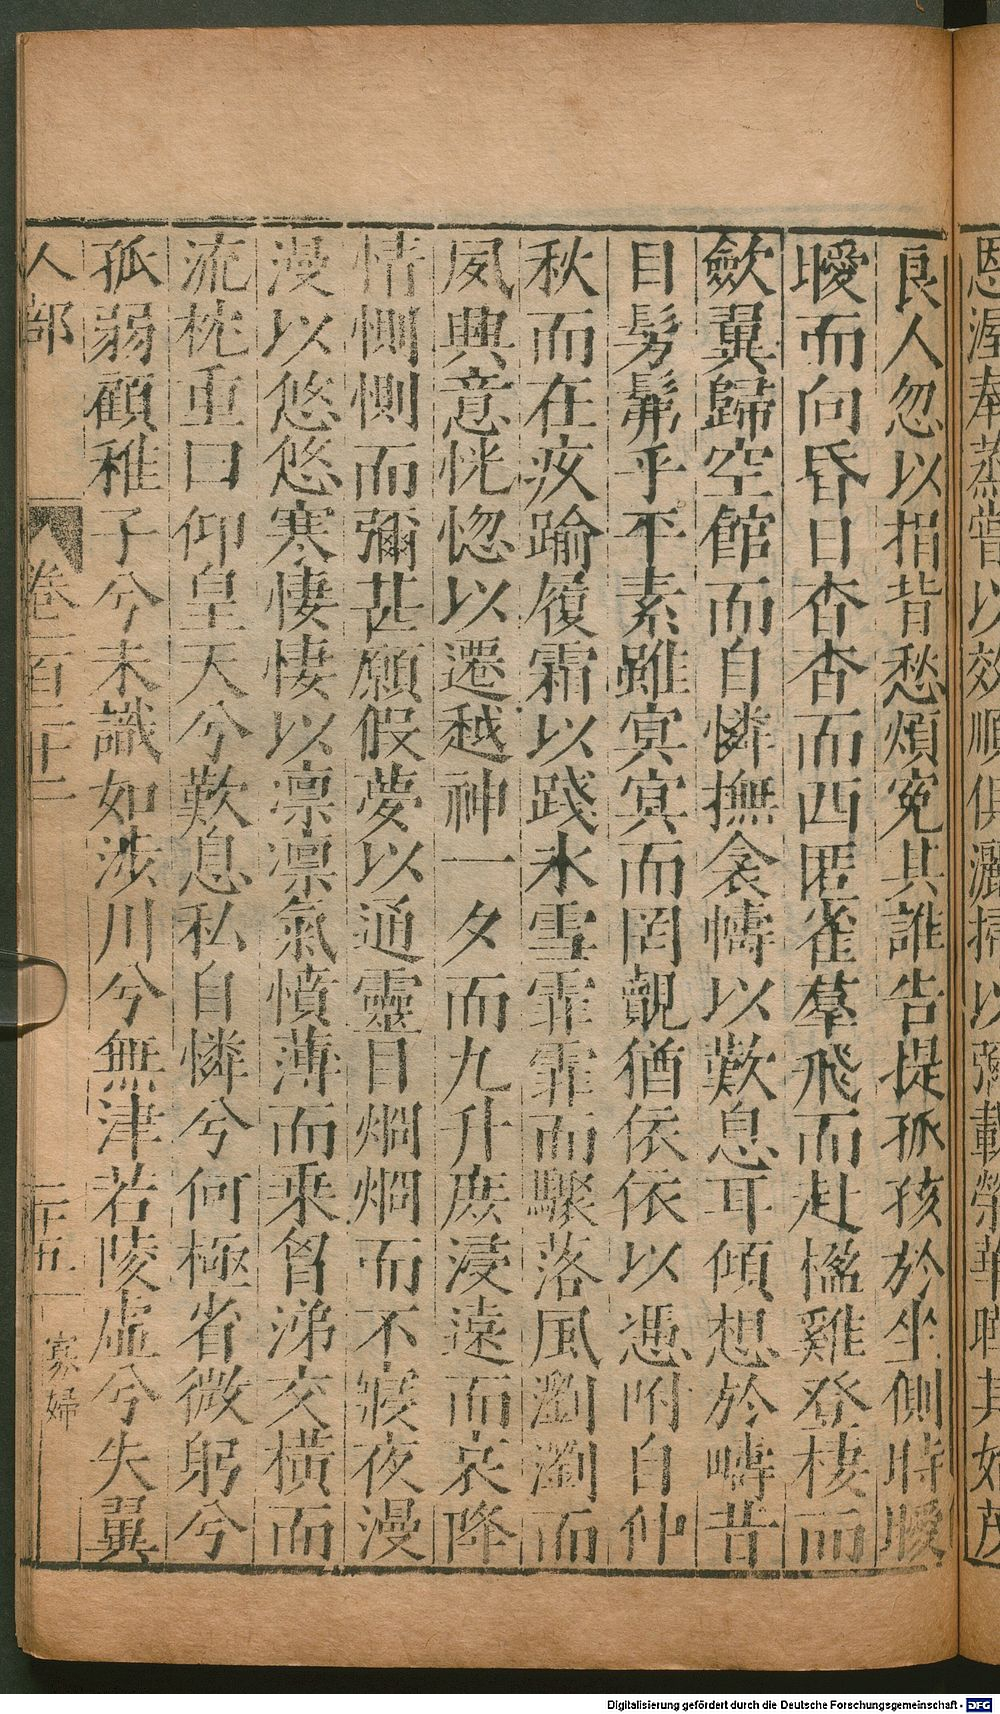 恩渥奉蒸嘗以效順俱灑掃以彌載榮華曄其始茂
良人忽以捐背愁煩冤其誰告提孤孩於坐側時曖
曖而向昏日杳杳而西匿雀羣飛而赴楹雞登棲而
斂翼歸空館而自憐撫衾幬以歎息耳傾想於疇昔
目髣髴乎平素雖冥冥而罔覿猶依依以憑附自仲
秋而在疚踰履霜以踐氷雪霏霏而驟落風瀏瀏而
夙興意恍惚以遷越神一夕而九升庶浸遠而哀降
情惻惻而彌甚願假夢以通靈目烱烱而不寢夜漫
漫以悠悠寒悽悽以凛凛氣憤薄而乘胷涕交橫而
流枕重曰仰皇天兮歎息私自憐兮何極省微躬兮
孤弱顧稚子兮未識如涉川兮無津若陵虛兮失翼
人部 卷一百二十二 二十五 寡婦
Digitalisierung gefördert durch die Deutsche Forschungsgemeinschaft - DFG